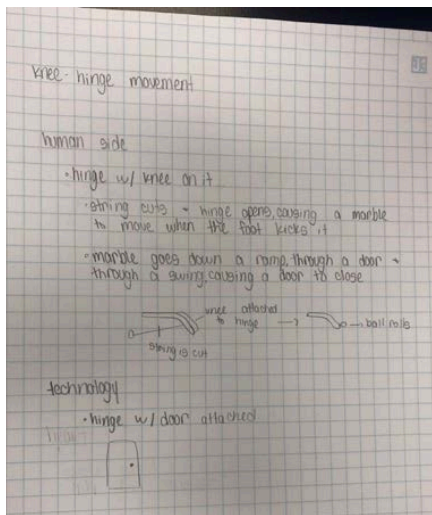 knee- hinge movement
human side
• hinge w/ knee on it
• string cuts → hinge opens, causing a marble
to move when the foot kicks it
• marble goes down a ramp, through a door →
through a swing, causing a door to close
knee attached
to hinge
ball rolls
string is cut
technology
• hinge w/ door attached